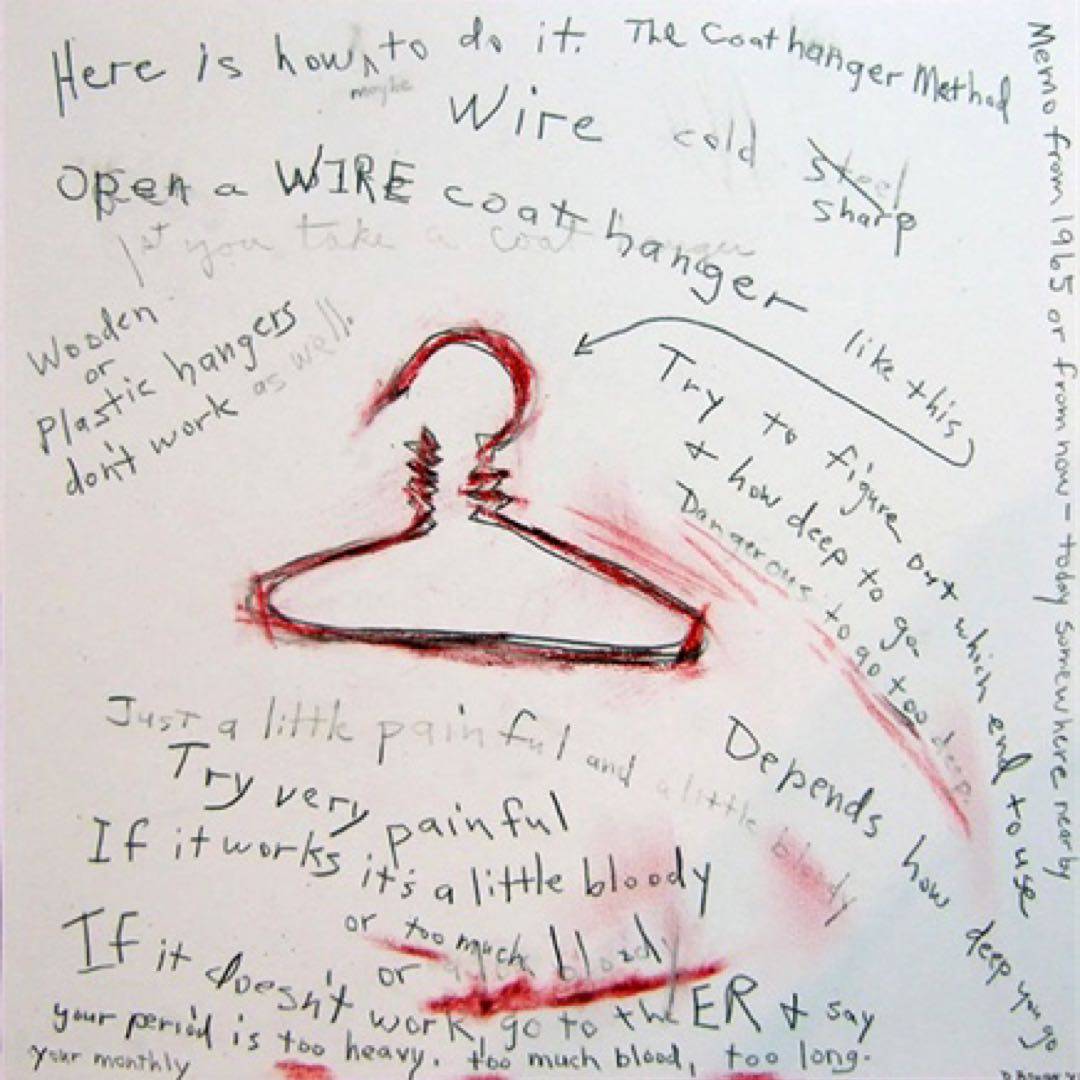 Here is how to do it. The Coathanger Method
maybe
Wire cold steel
sharp
Open a WIRE coat hanger like this
1st you take a coat hanger
Wooden
or
Plastic hangers
don't work as well.
Try to figure out which end to use
& how deep to go
Dangerous to go too deep.
Depends how deep you go
Just a little painful and a little bloody
Try very painful
If it works it's a little bloody
or too much
or a little bloody
If it doesn't work go to the ER & say
your period is too heavy. too much blood, too long.
your monthly
Memo from 1965 or from now - today somewhere nearby